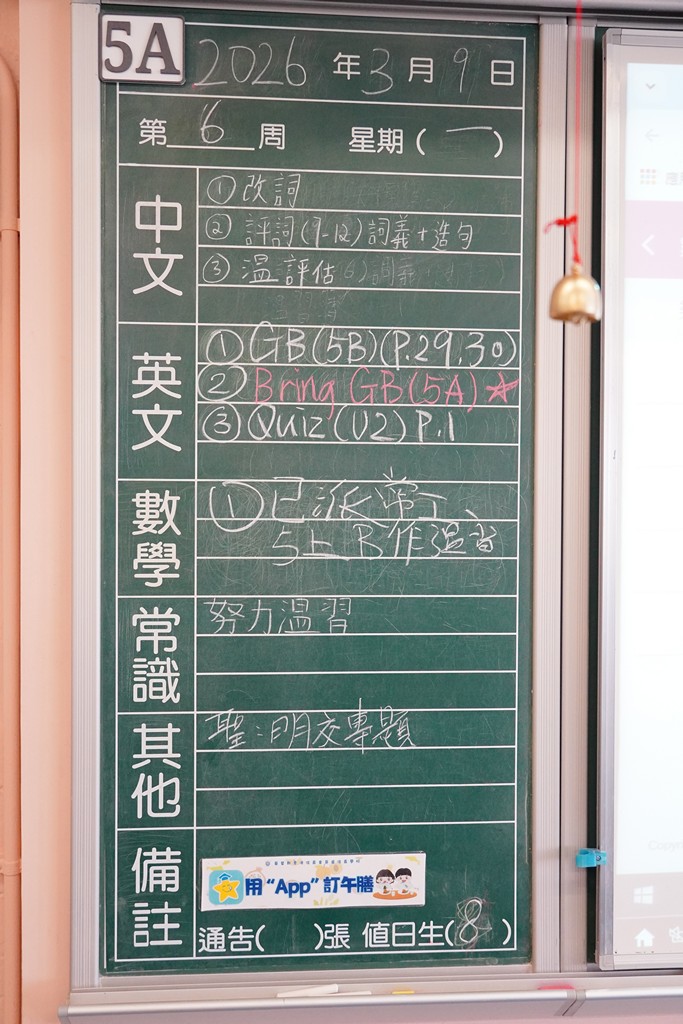 5A
2026年3月9日
第6周 星期(一)
中文
①改詞
②評詞(9-12)詞義+造句
③溫評估
英文
①GB(5B)(P.29,30)
②Bring GB(5A)☆
③Quiz(U2)P.1
數學
①已派
5上B作溫習
常識
努力溫習
其他
聖：明交專題
備註
用“App”訂午膳
通告( )張 值日生(8)